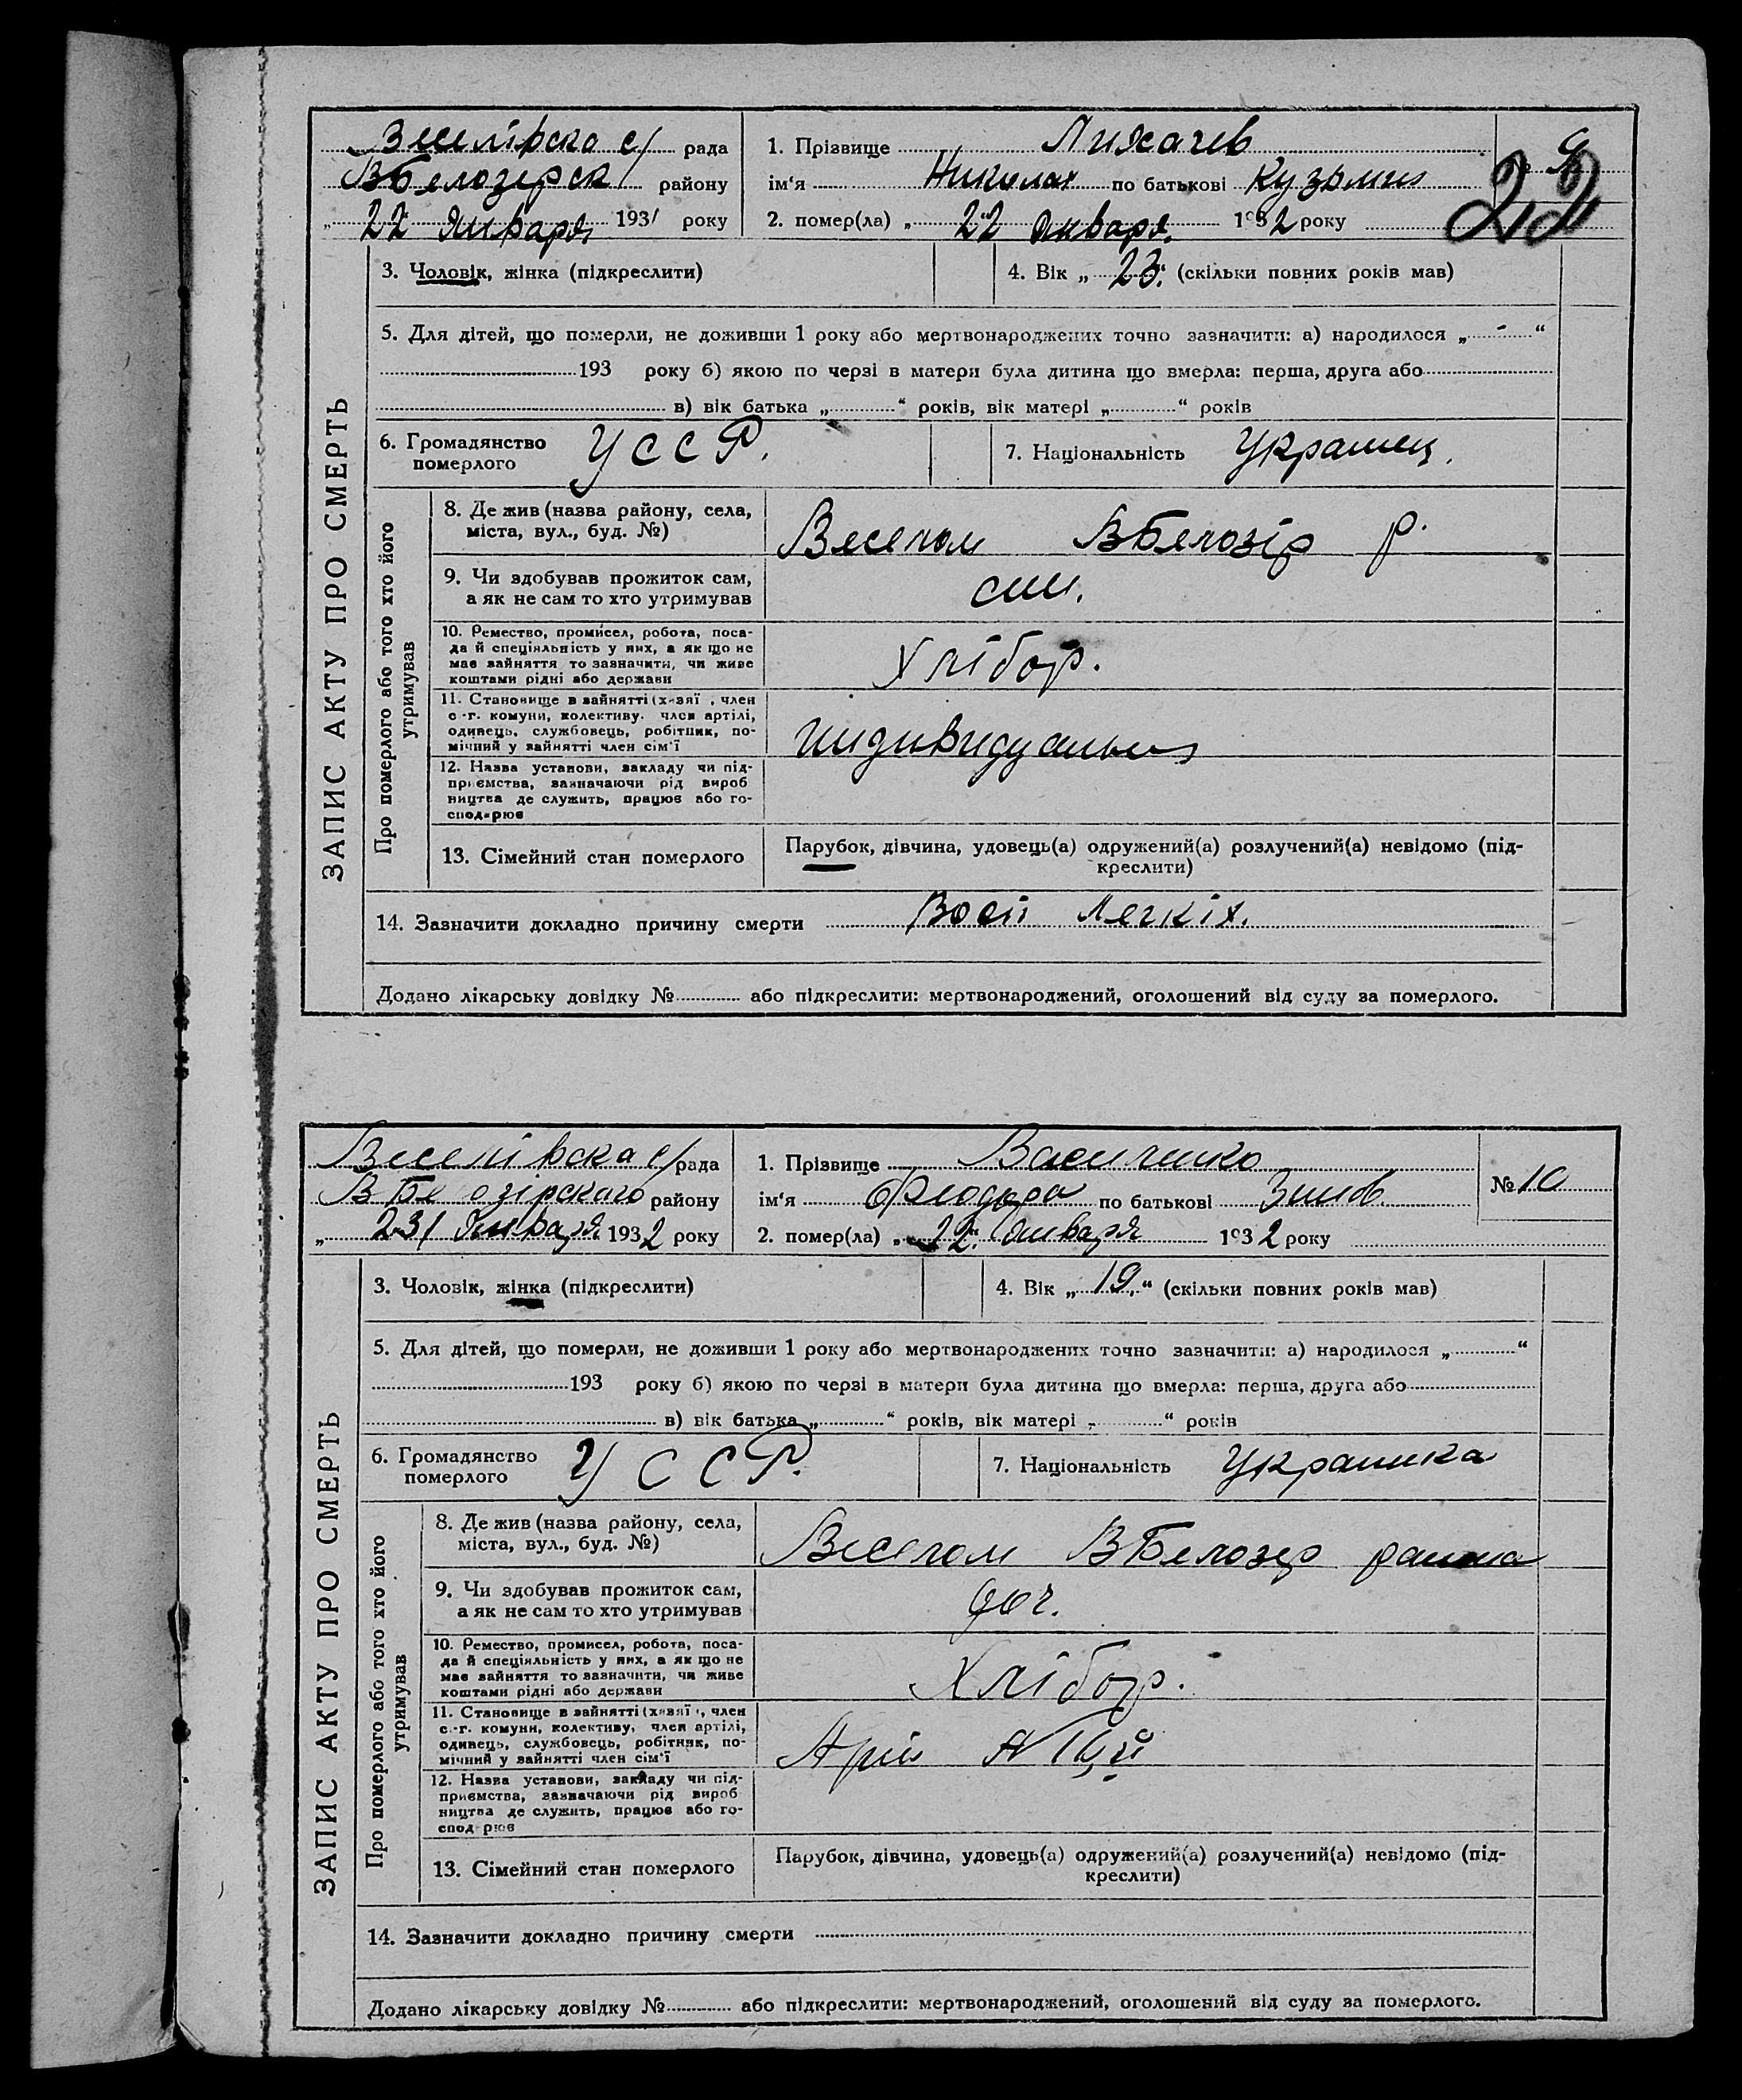 Веселівска с/ рада
ВБелозерск району
„ 22 Января 1931 року
1. Прізвище Лихачев
ім‘я Николай по батькові Кузьмич
2. помер(ла) „ 22 “ Января 1932 року
9
22
3. Чоловік, жінка (підкреслити)
4. Вік „ 23 “ (скільки повних років мав)
5. Для дітей, що померли, не доживши 1 року або мертвонароджених точно зазначити: а) народилося „ - “
193 року б) якою по черзі в матери була дитина що вмерла: перша, друга або
в) вік батька „ “ років, вік матері „ “ років
6. Громадянство
померлого
УССР.
7. Національність Украинец.
ЗАПИС АКТУ ПРО СМЕРТЬ
Про померлого або того хто його
утримував
8. Де жив (назва району, села,
міста, вул., буд. №)
Веселом ВБелозір р.
9. Чи здобував прожиток сам,
а як не сам то хто утримував
син.
10. Ремество, промисел, робота, поса-
да й спеціяльність у них, а як що не
має зайняття то зазначити, чи живе
коштами рідні або держави
Хлібор.
11. Становище в зайнятті (хазяї , член
с.-г. комуни, колективу, член артілі,
одинець, службовець, робітник, по-
мічний у зайнятті член сім‘ї
индивидуальн
12. Назва установи, закладу чи під-
приємства, зазначаючи рід вироб
ництва де служить, працює або го-
сподарює
13. Сімейний стан померлого
Парубок, дівчина, удовець(а) одружений(а) розлучений(а) невідомо (під-
креслити)
14. Зазначити докладно причину смерти Восп Легкіх.
Додано лікарську довідку № або підкреслити: мертвонароджений, оголошений від суду за померлого.
Веселівска с/ рада
ВБелозірского району
„ 23/ Января 1932 року
1. Прізвище Василенко
ім‘я Феодора по батькові Зинов.
2. помер(ла) „ 22 “ Января 1932 року
№ 10
3. Чоловік, жінка (підкреслити)
4. Вік „ 19. “ (скільки повних років мав)
5. Для дітей, що померли, не доживши 1 року або мертвонароджених точно зазначити: а) народилося „ “
193 року б) якою по черзі в матери була дитина що вмерла: перша, друга або
в) вік батька „ “ років, вік матері „ “ років
6. Громадянство
померлого
УССР.
7. Національність Украинка
ЗАПИС АКТУ ПРО СМЕРТЬ
Про померлого або того хто його
утримував
8. Де жив (назва району, села,
міста, вул., буд. №)
Веселом ВБелозер раиона
9. Чи здобував прожиток сам,
а як не сам то хто утримував
доч.
10. Ремество, промисел, робота, поса-
да й спеціяльність у них, а як що не
має зайняття то зазначити, чи живе
коштами рідні або держави
Хлібор.
11. Становище в зайнятті (хазяї , член
с.-г. комуни, колективу, член артілі,
одинець, службовець, робітник, по-
мічний у зайнятті член сім‘ї
12. Назва установи, закладу чи під-
приємства, зазначаючи рід вироб
ництва де служить, працює або го-
сподарює
13. Сімейний стан померлого
Парубок, дівчина, удовець(а) одружений(а) розлучений(а) невідомо (під-
креслити)
14. Зазначити докладно причину смерти
Додано лікарську довідку № або підкреслити: мертвонароджений, оголошений від суду за померлого.